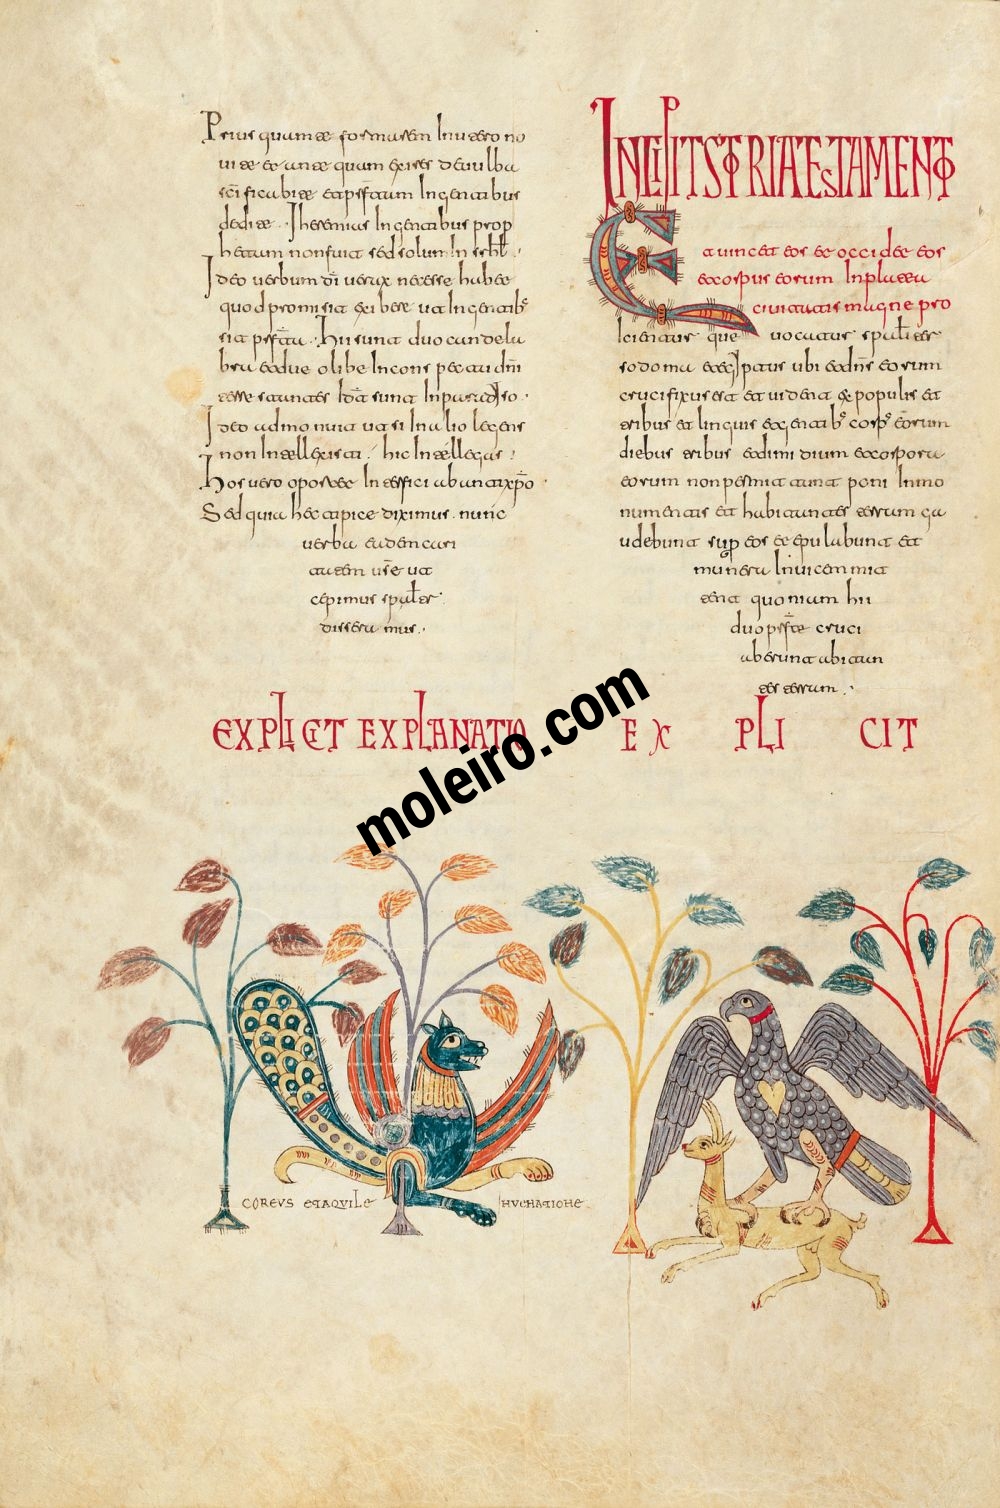 Prius quam te formarem In utero no
ui te et ante quam exires de uulba
scificabi te et pfetam In gentibus
dedi te. Iheremias In gentibus prop
hetam non fuit sed solum In
Ideo uerbum di uerax necesse habet
quod promisit exibere ut In gentibs
sit pfeta. hii sunt duo candela
bra et due olibe In conspectu dni
esse stantes Id est sunt In paradiso.
Ideo admonuit ut si In alio legens
non Intellexisti. hic Intellegas.
hos uero oportet Interfici ab antixpo
Sed quia hec apice diximus. nunc
uerba eadem
autem ut
cepimus
disseramus.
EXPLICIT EXPLANATIO
INCIPIT STORIA TESTAMENT
Et uincet eos et occidet eos
et corpus eorum In platea
ciuitatis magne pro
Icientur que uocatur
sodoma et egIptus ubi et dns eorum
crucifixus est et uident ex populis et
tribus et linguis et gentibs corps eorum
diebus tribus et dimidium et corpora
eorum non permittunt poni In mo
numentis et habitantes terram ga
udebunt sup eos et epulabunt et
munera Inuicem mit
tent quoniam hii
duo pfete cruci
aberunt abitan
tes terram.
EXPLICIT
COREUS ET AQUILE